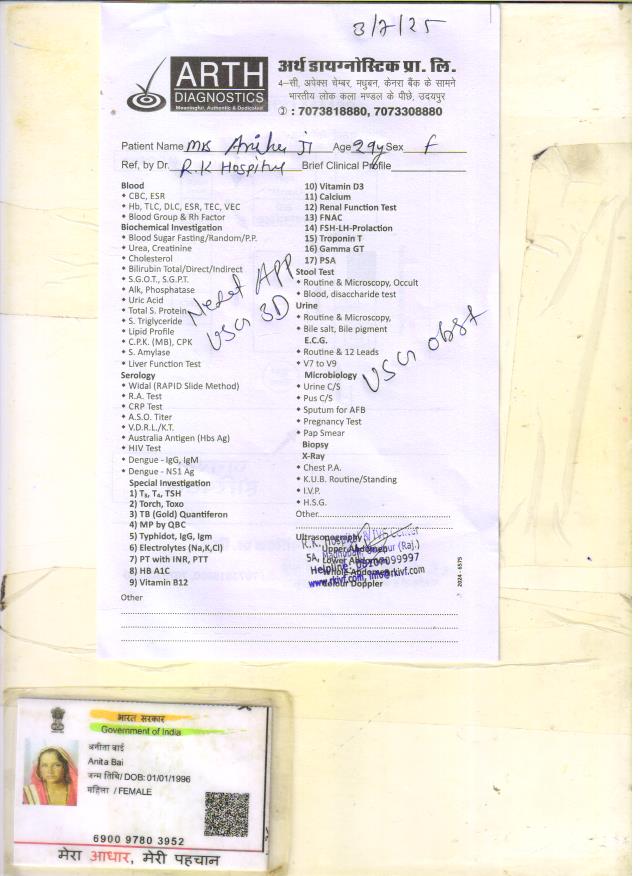 3/7/25
ARTH
DIAGNOSTICS
Meaningful, Authentic & Dedicated
अर्थ डायग्नोस्टिक प्रा. लि.
4–सी, अपेक्स चेम्बर, मधुबन, केनरा बैंक के सामने
भारतीय लोक कला मण्डल के पीछे, उदयपुर
: 7073818880, 7073308880
Patient Name Mrs Age 29y Sex F
Ref, by Dr. R.K Hospital Brief Clinical Profile
Blood
CBC, ESR
Hb, TLC, DLC, ESR, TEC, VEC
Blood Group & Rh Factor
Biochemical Investigation
Blood Sugar Fasting/Random/P.P.
Urea, Creatinine
Cholesterol
Bilirubin Total/Direct/Indirect
S.G.O.T., S.G.P.T.
Alk, Phosphatase
Uric Acid
Total S. Protein
S. Triglyceride
Lipid Profile
C.P.K. (MB), CPK
S. Amylase
Liver Function Test
Serology
Widal (RAPID Slide Method)
R.A. Test
CRP Test
A.S.O. Titer
V.D.R.L./K.T.
Australia Antigen (Hbs Ag)
HIV Test
Dengue - IgG, IgM
Dengue - NS1 Ag
Special Investigation
1) T₃, T₄, TSH
2) Torch, Toxo
3) TB (Gold) Quantiferon
4) MP by QBC
5) Typhidot, IgG, Igm
6) Electrolytes (Na,K,Cl)
7) PT with INR, PTT
8) HB A1C
9) Vitamin B12
10) Vitamin D3
11) Calcium
12) Renal Function Test
13) FNAC
14) FSH-LH-Prolaction
15) Troponin T
16) Gamma GT
17) PSA
Stool Test
Routine & Microscopy, Occult
Blood, disaccharide test
Urine
Routine & Microscopy,
Bile salt, Bile pigment
E.C.G.
Routine & 12 Leads
V7 to V9
Microbiology
Urine C/S
Pus C/S
Sputum for AFB
Pregnancy Test
Pap Smear
Biopsy
X-Ray
Chest P.A.
K.U.B. Routine/Standing
I.V.P.
H.S.G.
Other
Ultrasonography
Upper Abdomen
Lower Abdomen
Whole Abdomen
Colour Doppler
Next APP
USG 3D
USG obst
R.K. Hospital & IVF Center
5A, Madhuban, Udaipur (Raj.)
www.rkivf.com, info@rkivf.com
2024 - 6575
Other
भारत सरकार
Government of India
अनीता बाई
Anita Bai
जन्म तिथि/ DOB: 01/01/1996
महिला / FEMALE
6900 9780 3952
मेरा आधार, मेरी पहचान